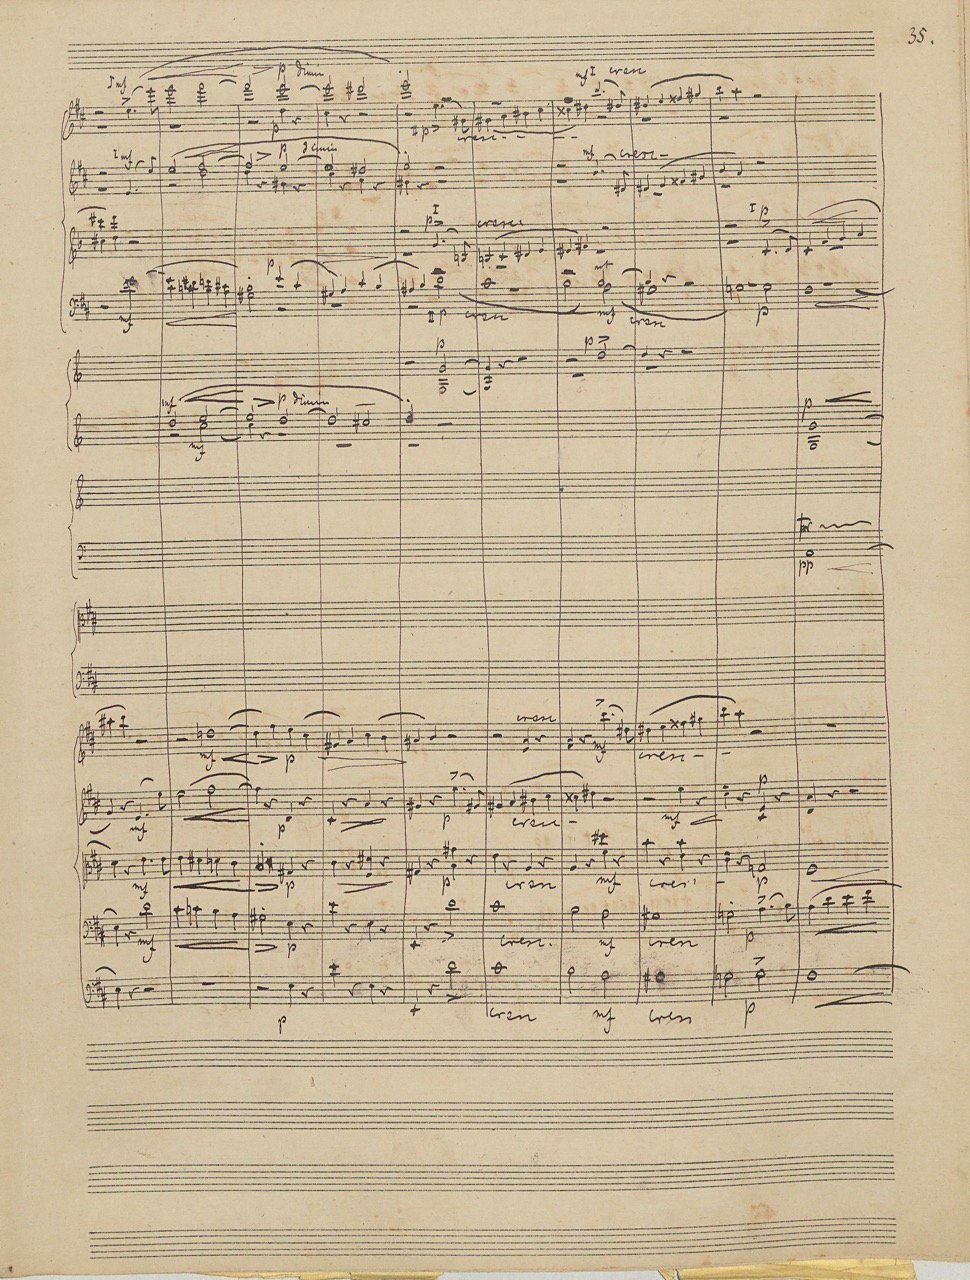 35.
I mf p dimin mf I cresc
II p cresc - - -
I mf p dimin mf cresc -
I p cresc I p
p mf
mf II p cresc mf cresc p
p p
mf p dimin p
mf
tr
pp
cresc
mf p mf cresc - -
p
mf p p cresc - mf
mf p p cresc mf cresc - p
mf p cresc. mf cresc p
p cresc mf cresc p